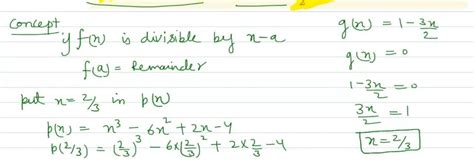 Concept
if f(x) is divisible by x-a
f(a) = Remainder
put x = 2/3 in p(x)
p(x) = x³ - 6x² + 2x - 4
p(2/3) = (2/3)³ - 6×(2/3)² + 2×2/3 - 4
g(x) = 1 - 3x/2
g(x) = 0
1 - 3x/2 = 0
3x/2 = 1
x = 2/3